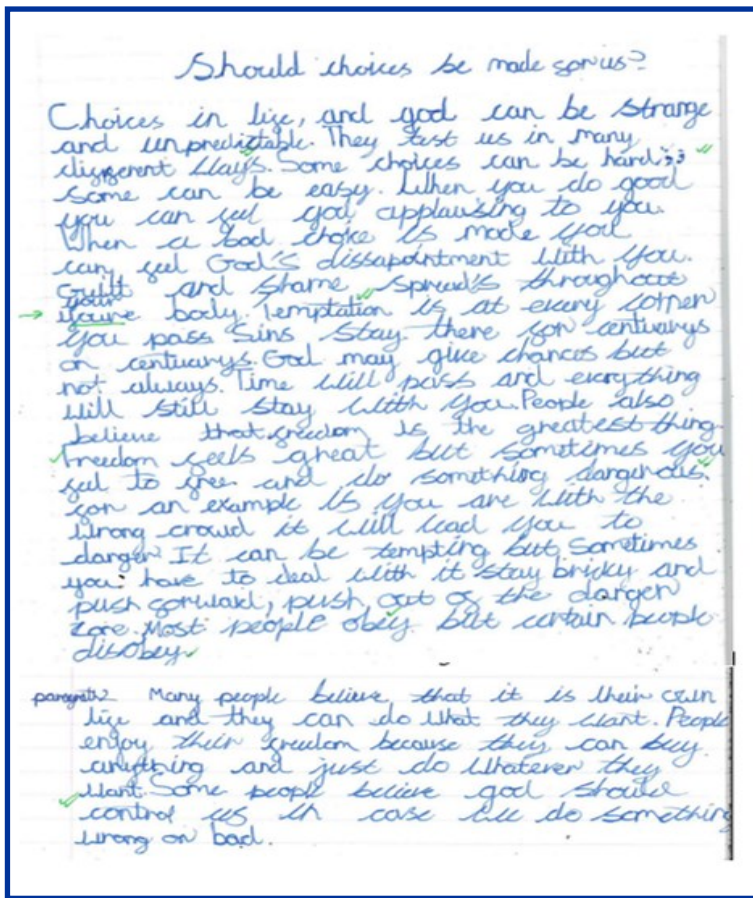 Should choices be made for us?
Choices in life, and god can be strange
and unpredictable. They test us in many
different ways. Some choices can be hard;
some can be easy. When you do good
you can feel god applausing to you.
When a bad choice is made you
can feel God's dissapointment with you.
Guilt and shame spread's throughout
your
youre body. Temptation is at every corner
you pass Sins stay there for centuarys
on centuarys. God may give chances but
not always. Time will pass and everything
will still stay with you. People also
believe that freedom is the greatest thing.
Freedom feels great but sometimes you
feel to free and do something dangerous.
for an example is you are with the
wrong crowd it will lead you to
danger. It can be tempting but sometimes
you have to deal with it stay bricky and
push forward, push out of the danger
zone. Most people obey but certain people
disobey
paragrath2 Many people believe that it is their own
life and they can do what they want. People
enjoy their freedom because they can buy
anything and just do whatever they
want. Some people believe god should
control us in case we do something
wrong or bad.